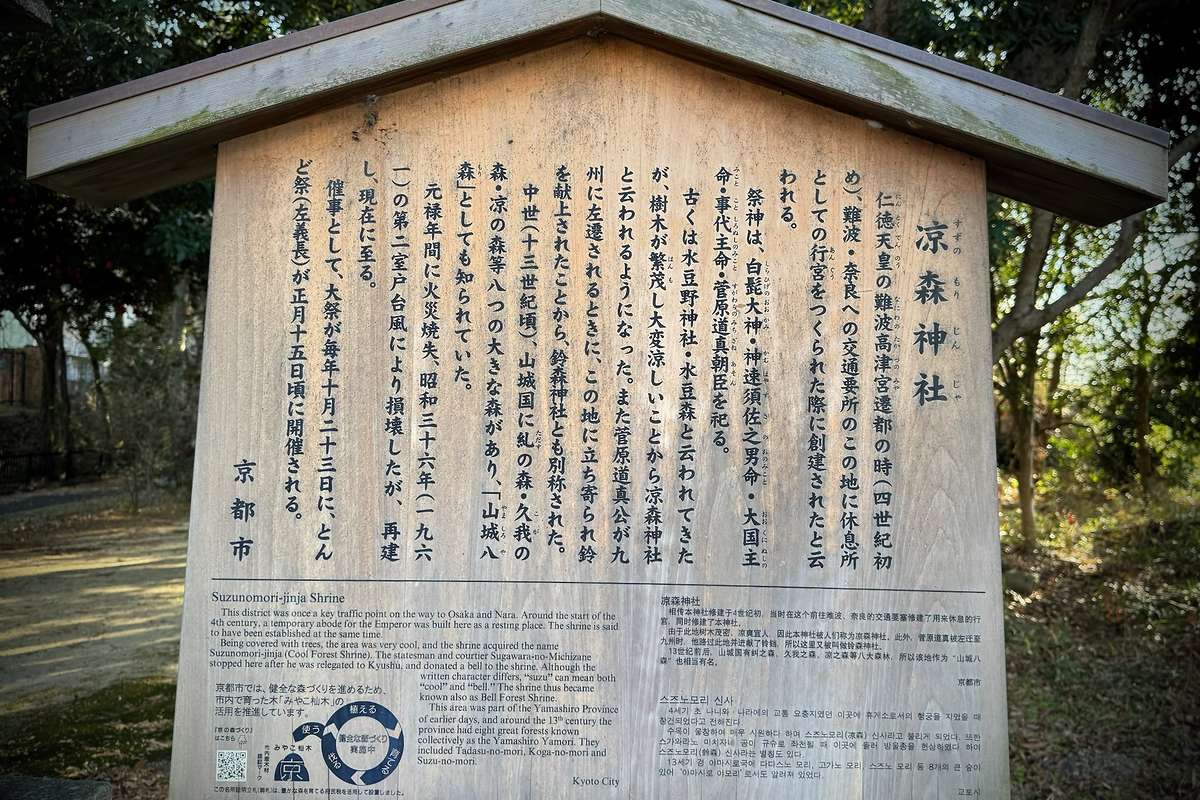 涼森神社
仁徳天皇の難波高津宮遷都の時(四世紀初
め)、難波・奈良への交通要所のこの地に休息所
としての行宮をつくられた際に創建されたと云
われる。
祭神は、白髭大神・神速須佐之男命・大国主
命・事代主命・菅原道真朝臣を祀る。
古くは水豆野神社・水豆森と云われてきた
が、樹木が繁茂し大変涼しいことから涼森神社
と云われるようになった。また菅原道真公が九
州に左遷されるときに、この地に立ち寄られ鈴
を献上されたことから、鈴森神社とも別称された。
中世(十三世紀頃)、山城国に糺の森・久我の
森・涼の森等八つの大きな森があり、「山城八
森」としても知られていた。
元禄年間に火災焼失、昭和三十六年(一九六
一)の第二室戸台風により損壊したが、再建
し、現在に至る。
催事として、大祭が毎年十月二十三日に、とん
ど祭(左義長)が正月十五日頃に開催される。
京都市
Suzunomori-jinja Shrine
This district was once a key traffic point on the way to Osaka and Nara. Around the start of the
4th century, a temporary abode for the Emperor was built here as a resting place. The shrine is said
to have been established at the same time.
Being covered with trees, the area was very cool, and the shrine acquired the name
Suzunomori-jinja (Cool Forest Shrine). The statesman and courtier Sugawara-no-Michizane
stopped here after he was relegated to Kyushu, and donated a bell to the shrine. Although the
written character differs, "suzu" can mean both
"cool" and "bell." The shrine thus became
known also as Bell Forest Shrine.
This area was part of the Yamashiro Province
of earlier days, and around the 13th century the
province had eight great forests known
collectively as the Yamashiro Yamori. They
included Tadasu-no-mori, Koga-no-mori and
Suzu-no-mori.
Kyoto City
京都市では、健全な森づくりを進めるため、
市内で育った木「みやこ杣木」の
活用を推進しています。
「京の森づくり」
はこちら
みやこ杣木
京
植える
使う
健全な森づくり
実施中
凉森神社
相传本神社修建于4世纪初，当时在这个前往难波、奈良的交通要塞修建了用来休息的行
宫，同时修建了本神社。
由于此地树木茂密，凉爽宜人，因此本神社被人们称为凉森神社。此外，菅原道真被左迁至
九州时，他路过此地并进献了铃铛，所以这里又被叫做铃森神社。
13世纪前后，山城国有糾之森、久我之森、凉之森等八大森林，所以该地作为“山城八
森”也相当有名。
京都市
스즈노모리 신사
4세기 초 나니와・나라에의 교통 요충지였던 이곳에 휴게소로서의 행궁을 지었을 때
창건되었다고 전해진다.
수목이 울창하여 매우 시원하다 하여 스즈노모리(凉森) 신사라고 불리게 되었다. 또한
스가와라노 미치자네 공이 규슈로 좌천될 때 이곳에 들러 방울종을 헌상하였다 하여
스즈노모리(鈴森) 신사라는 별칭도 있다.
13세기 경 야마시로국에 다다스노 모리, 고가노 모리, 스즈노 모리 등 8개의 큰 숲이
있어 '야마시로 야모리'로서도 알려져 있었다.
교토시